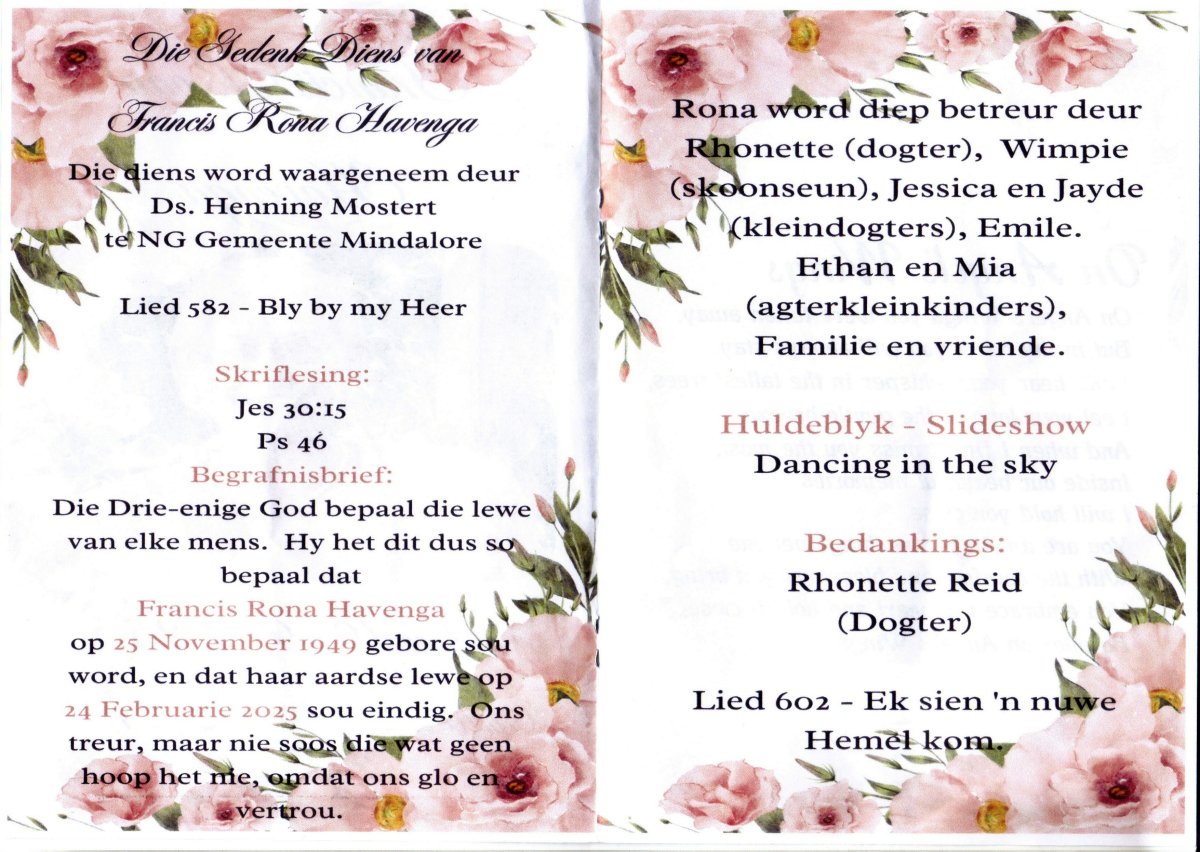 Die Gedenk Diens van
Francis Rona Havenga
Die diens word waargeneem deur
Ds. Henning Mostert
te NG Gemeente Mindalore
Lied 582 - Bly by my Heer
Skriflesing:
Jes 30:15
Ps 46
Begrafnisbrief:
Die Drie-enige God bepaal die lewe
van elke mens.  Hy het dit dus so
bepaal dat
Francis Rona Havenga
op 25 November 1949 gebore sou
word, en dat haar aardse lewe op
24 Februarie 2025 sou eindig.  Ons
treur, maar nie soos die wat geen
hoop het nie, omdat ons glo en
vertrou.
Rona word diep betreur deur
Rhonette (dogter),  Wimpie
(skoonseun), Jessica en Jayde
(kleindogters), Emile.
Ethan en Mia
(agterkleinkinders),
Familie en vriende.
Huldeblyk - Slideshow
Dancing in the sky
Bedankings:
Rhonette Reid
(Dogter)
Lied 602 - Ek sien 'n nuwe
Hemel kom.